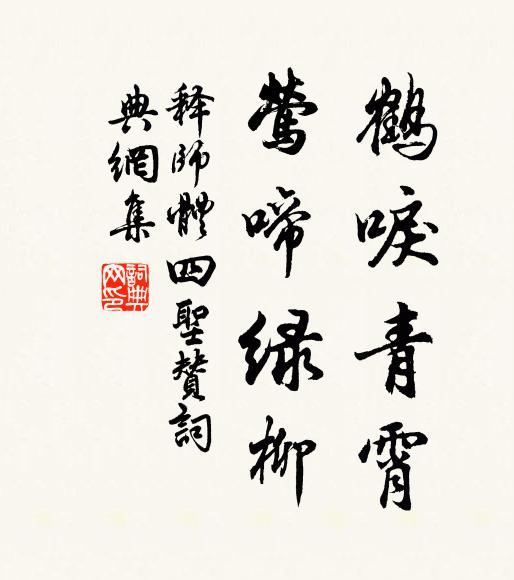 鶴唳青霄
鶯啼緑柳
释師體四聖贊詞
典網集
詞典網印